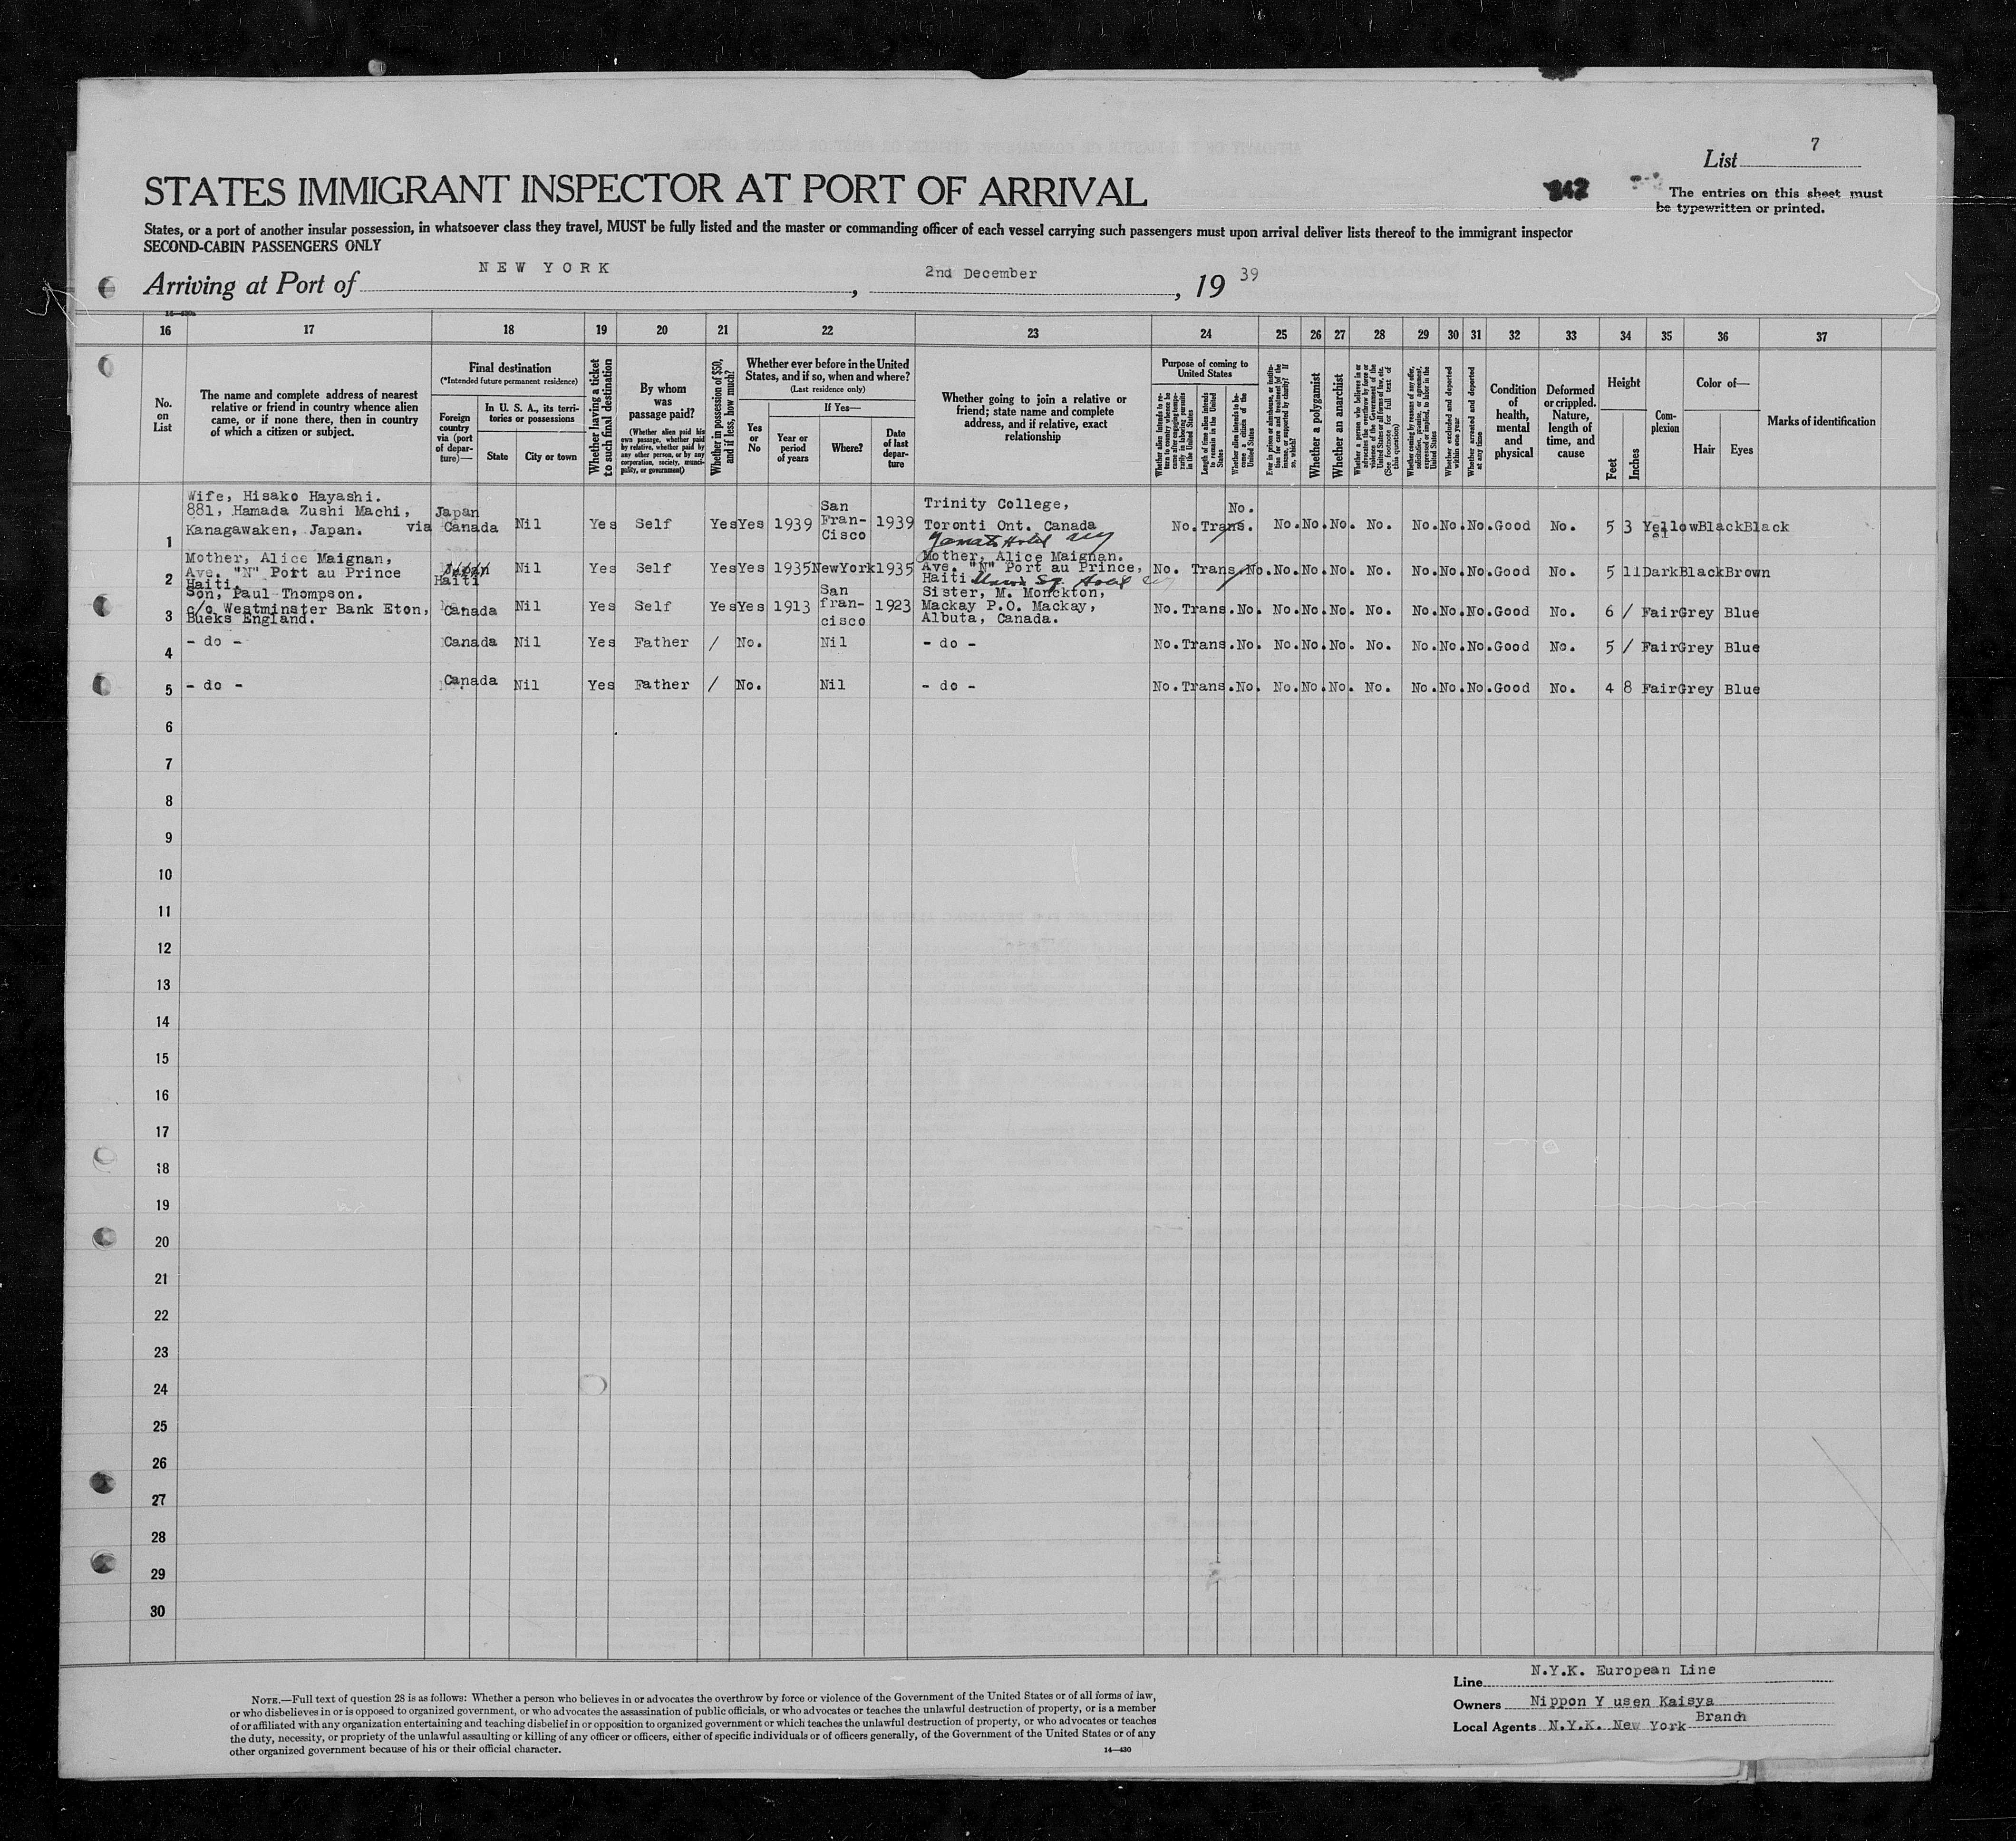 List 7
STATES IMMIGRANT INSPECTOR AT PORT OF ARRIVAL
242
The entries on this sheet must
be typewritten or printed.
States, or a port of another insular possession, in whatsoever class they travel, MUST be fully listed and the master or commanding officer of each vessel carrying such passengers must upon arrival deliver lists thereof to the immigrant inspector
SECOND-CABIN PASSENGERS ONLY
Arriving at Port of NEW YORK, 2nd December, 19 39
16 17 18 19 20 21 22 23 24 25 26 27 28 29 30 31 32 33 34 35 36 37
No. on List
The name and complete address of nearest
relative or friend in country whence alien
came, or if none there, then in country
of which a citizen or subject.
Final destination
(*Intended future permanent residence)
Foreign country via (port of departure)—
In U. S. A., its territories or possessions
State
City or town
Whether having a ticket to such final destination
By whom was passage paid?
(Whether alien paid his own passage, whether paid by relative, whether paid by any other person, or by any corporation, society, municipality, or government)
Whether in possession of $50, and if less, how much?
Whether ever before in the United
States, and if so, when and where?
(Last residence only)
Yes or No
If Yes—
Year or period of years
Where?
Date of last departure
Whether going to join a relative or
friend; state name and complete
address, and if relative, exact
relationship
Purpose of coming to
United States
Whether alien intends to return to country whence he came after engaging temporarily in laboring pursuits in the United States
Length of time alien intends to remain in the United States
Whether alien intends to become a citizen of the United States
Ever in prison or almshouse, or institution for care and treatment of the insane, or supported by charity? If so, which?
Whether a polygamist
Whether an anarchist
Whether a person who believes in or advocates the overthrow by force or violence of the Government of the United States or all forms of law, etc. (See footnote for full text of this question)
Whether coming by reason of any offer, solicitation, promise, or agreement, expressed or implied, to labor in the United States
Whether excluded and deported within one year
Whether arrested and deported at any time
Condition of health, mental and physical
Deformed or crippled. Nature, length of time, and cause
Height
Feet
Inches
Complexion
Color of—
Hair
Eyes
Marks of identification
Wife, Hisako Hayashi.
881, Hamada Zushi Machi,
Kanagawaken, Japan.
1 Japan via Canada Nil Yes Self Yes Yes 1939 San Fran-Cisco 1939
Trinity College,
Toronti Ont. Canada
Yamato Hotel
No. Trans. No. No. No. No. No. No. No. No. Good No. 5 3 Yellow Black Black
Mother, Alice Maignan,
Ave. "N" Port au Prince
Haiti.
2 Japan Haiti Nil Yes Self Yes Yes 1935 New York 1935
Mother, Alice Maignan.
Ave. "N" Port au Prince,
Haiti
No. Trans. No. No. No. No. No. No. No. No. Good No. 5 11 Dark Black Brown
Son, Paul Thompson.
c/o Westminster Bank Eton,
Bucks England.
3 Canada Nil Yes Self Yes Yes 1913 San fran-cisco 1923
Sister, M. Monckton,
Mackay P.O. Mackay,
Albuta, Canada.
No. Trans. No. No. No. No. No. No. No. No. Good No. 6 / Fair Grey Blue
4 - do - Canada Nil Yes Father / No. Nil - do - No. Trans. No. No. No. No. No. No. No. No. Good No. 5 / Fair Grey Blue
5 - do - Canada Nil Yes Father / No. Nil - do - No. Trans. No. No. No. No. No. No. No. No. Good No. 4 8 Fair Grey Blue
6
7
8
9
10
11
12
13
14
15
16
17
18
19
20
21
22
23
24
25
26
27
28
29
30
NOTE.—Full text of question 28 is as follows: Whether a person who believes in or advocates the overthrow by force or violence of the Government of the United States or of all forms of law,
or who disbelieves in or is opposed to organized government, or who advocates the assassination of public officials, or who advocates or teaches the unlawful destruction of property, or is a member
of or affiliated with any organization entertaining and teaching disbelief in or opposition to organized government or which teaches the unlawful destruction of property, or who advocates or teaches
the duty, necessity, or propriety of the unlawful assaulting or killing of any officer or officers, either of specific individuals or of officers generally, of the Government of the United States or of any
other organized government because of his or their official character.
14—430
Line N.Y.K. European Line
Owners Nippon Y usen Kaisya
Local Agents N.Y.K. New York Branch